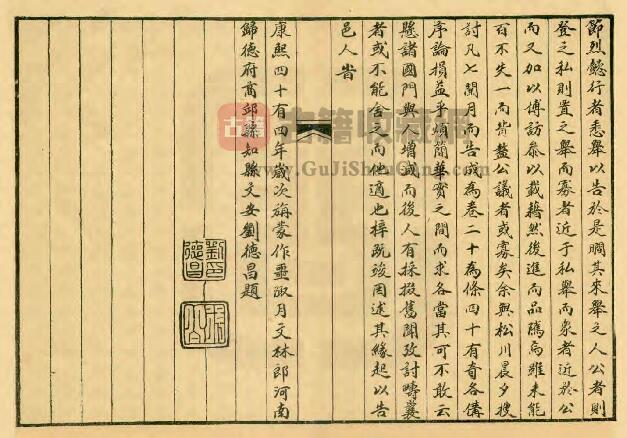 節烈懿行者悉舉以告於是瞷其來舉之人公者則
登之私則置之舉而寡者近于私舉而眾者近於公
而又加以傳訪叅以載籍然後進而品隲焉雖未能
百不失一而背盭公議者或寡矣余與松川晨夕搜
討凡七閱月而告成為卷二十為條四十有奇各偹
序論損益乎煩簡華實之間而求各當其可不敢云
懸諸國門與人增減而後人有採掇舊聞攷討疇曩
者或不能舍之而他適也梓既竣因述其緣起以告
邑人旹
康熙四十有四年歲次旃蒙作噩淑月文林郎河南
歸德府商邱縣知縣文安劉德昌題
劉印德昌
古籍
古籍收藏網
www.GuJiShouCang.com